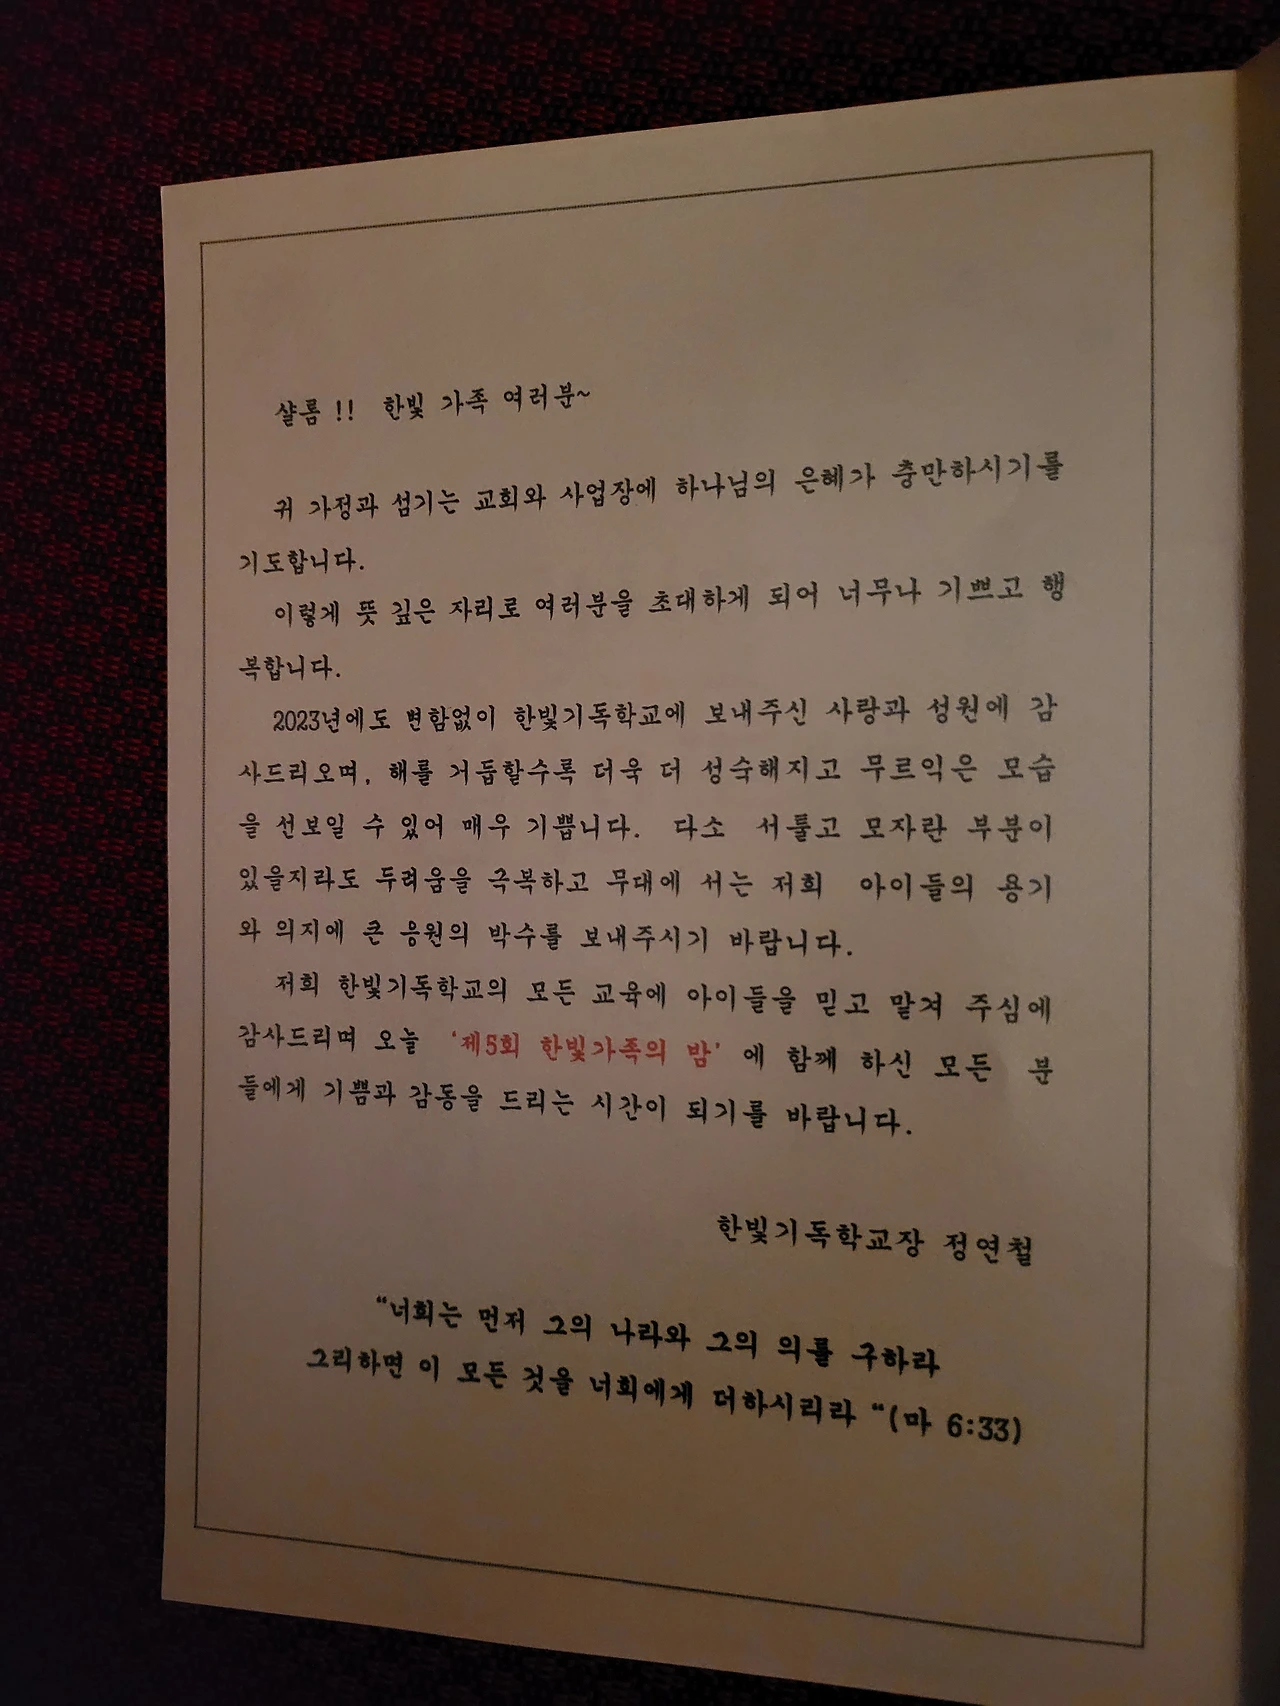 샬롬 !! 한빛 가족 여러분~
귀 가정과 섬기는 교회와 사업장에 하나님의 은혜가 충만하시기를
기도합니다.
이렇게 뜻 깊은 자리로 여러분을 초대하게 되어 너무나 기쁘고 행
복합니다.
2023년에도 변함없이 한빛기독학교에 보내주신 사랑과 성원에 감
사드리오며, 해를 거듭할수록 더욱 더 성숙해지고 무르익은 모습
을 선보일 수 있어 매우 기쁩니다. 다소 서툴고 모자란 부분이
있을지라도 두려움을 극복하고 무대에 서는 저희 아이들의 용기
와 의지에 큰 응원의 박수를 보내주시기 바랍니다.
저희 한빛기독학교의 모든 교육에 아이들을 믿고 맡겨 주심에
감사드리며 오늘 '제5회 한빛가족의 밤' 에 함께 하신 모든 분
들에게 기쁨과 감동을 드리는 시간이 되기를 바랍니다.
한빛기독학교장 정연철
“너희는 먼저 그의 나라와 그의 의를 구하라
그리하면 이 모든 것을 너희에게 더하시리라 “(마 6:33)